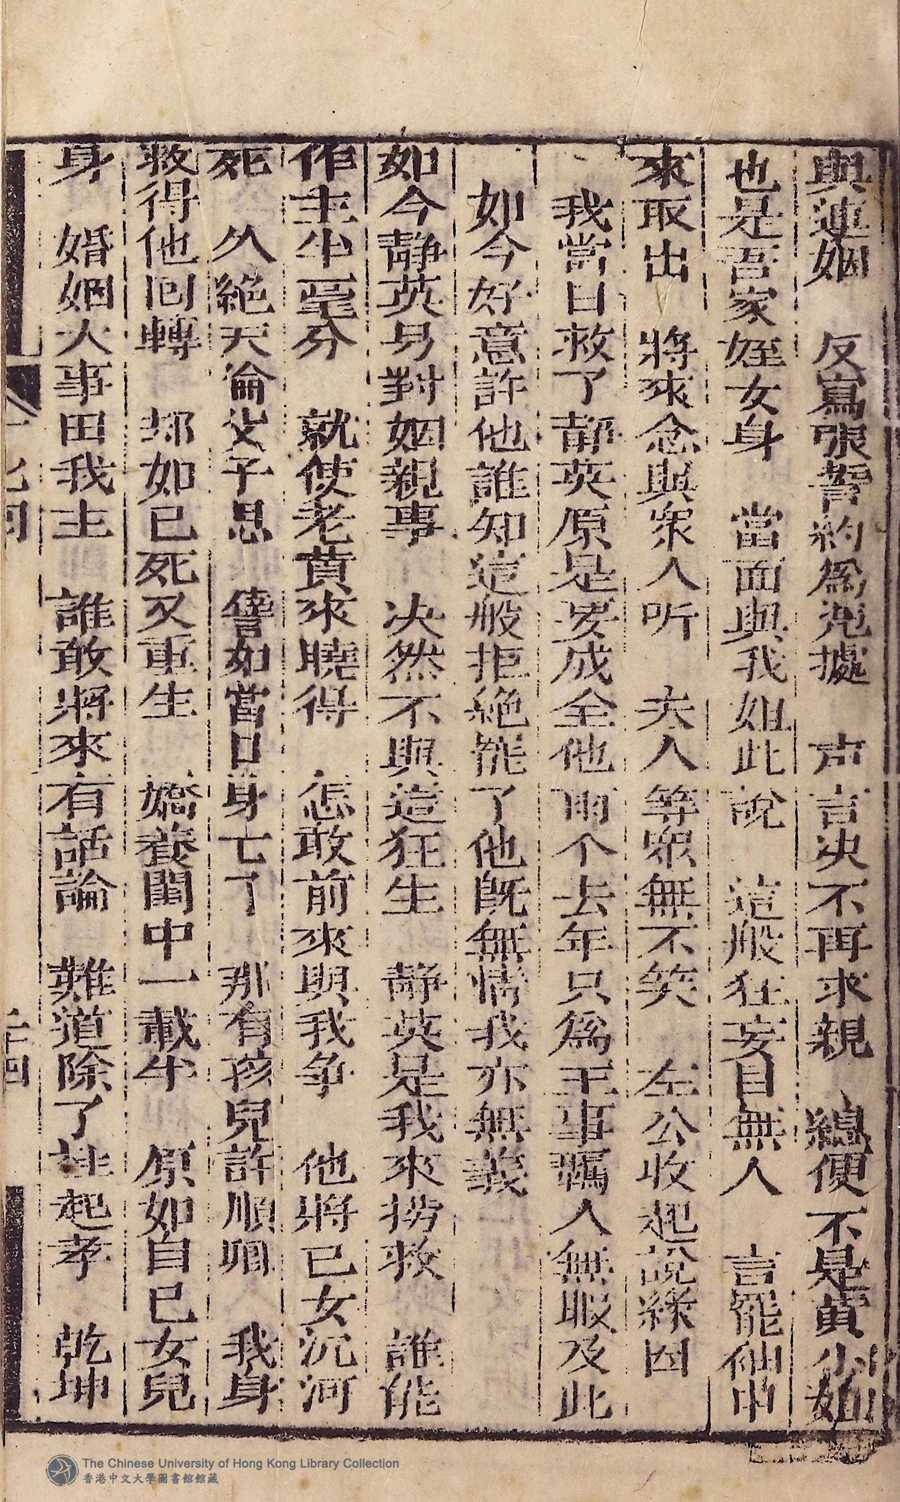 與連姻　反寫張誓約為凴據　声言决不再求親　縂便不是黄少姐
也是吾家姪女身　當面與我如此說　這般狂妄目無人　言罷袖中
來取出　將來念與衆人听　夫人等衆無不笑　左公收起說緣因
我當日救了靜英原是要成全他兩个去年只為王事羈人無暇及此
如今好意許他誰知這般拒絕罷了他旣無情我亦無義
如今靜英另對姻親事　决然不與這狂生　靜英是我來撈救　誰能
作主半毫分　就使老黄來曉得　怎敢前來與我争　他將已女沉河
死　久絕天倫父子恩　儻如當日身亡了　那有孩兒許順卿　我身
救得他囘轉　却如已死又重生　嬌養閨中一載半　原如自已女兒
身　婚姻大事由我主　誰敢將來有話論　難道除了桂起孝　乾坤
囘
四
The Chinese University of Hong Kong Library Collection
香港中文大學圖書館館藏